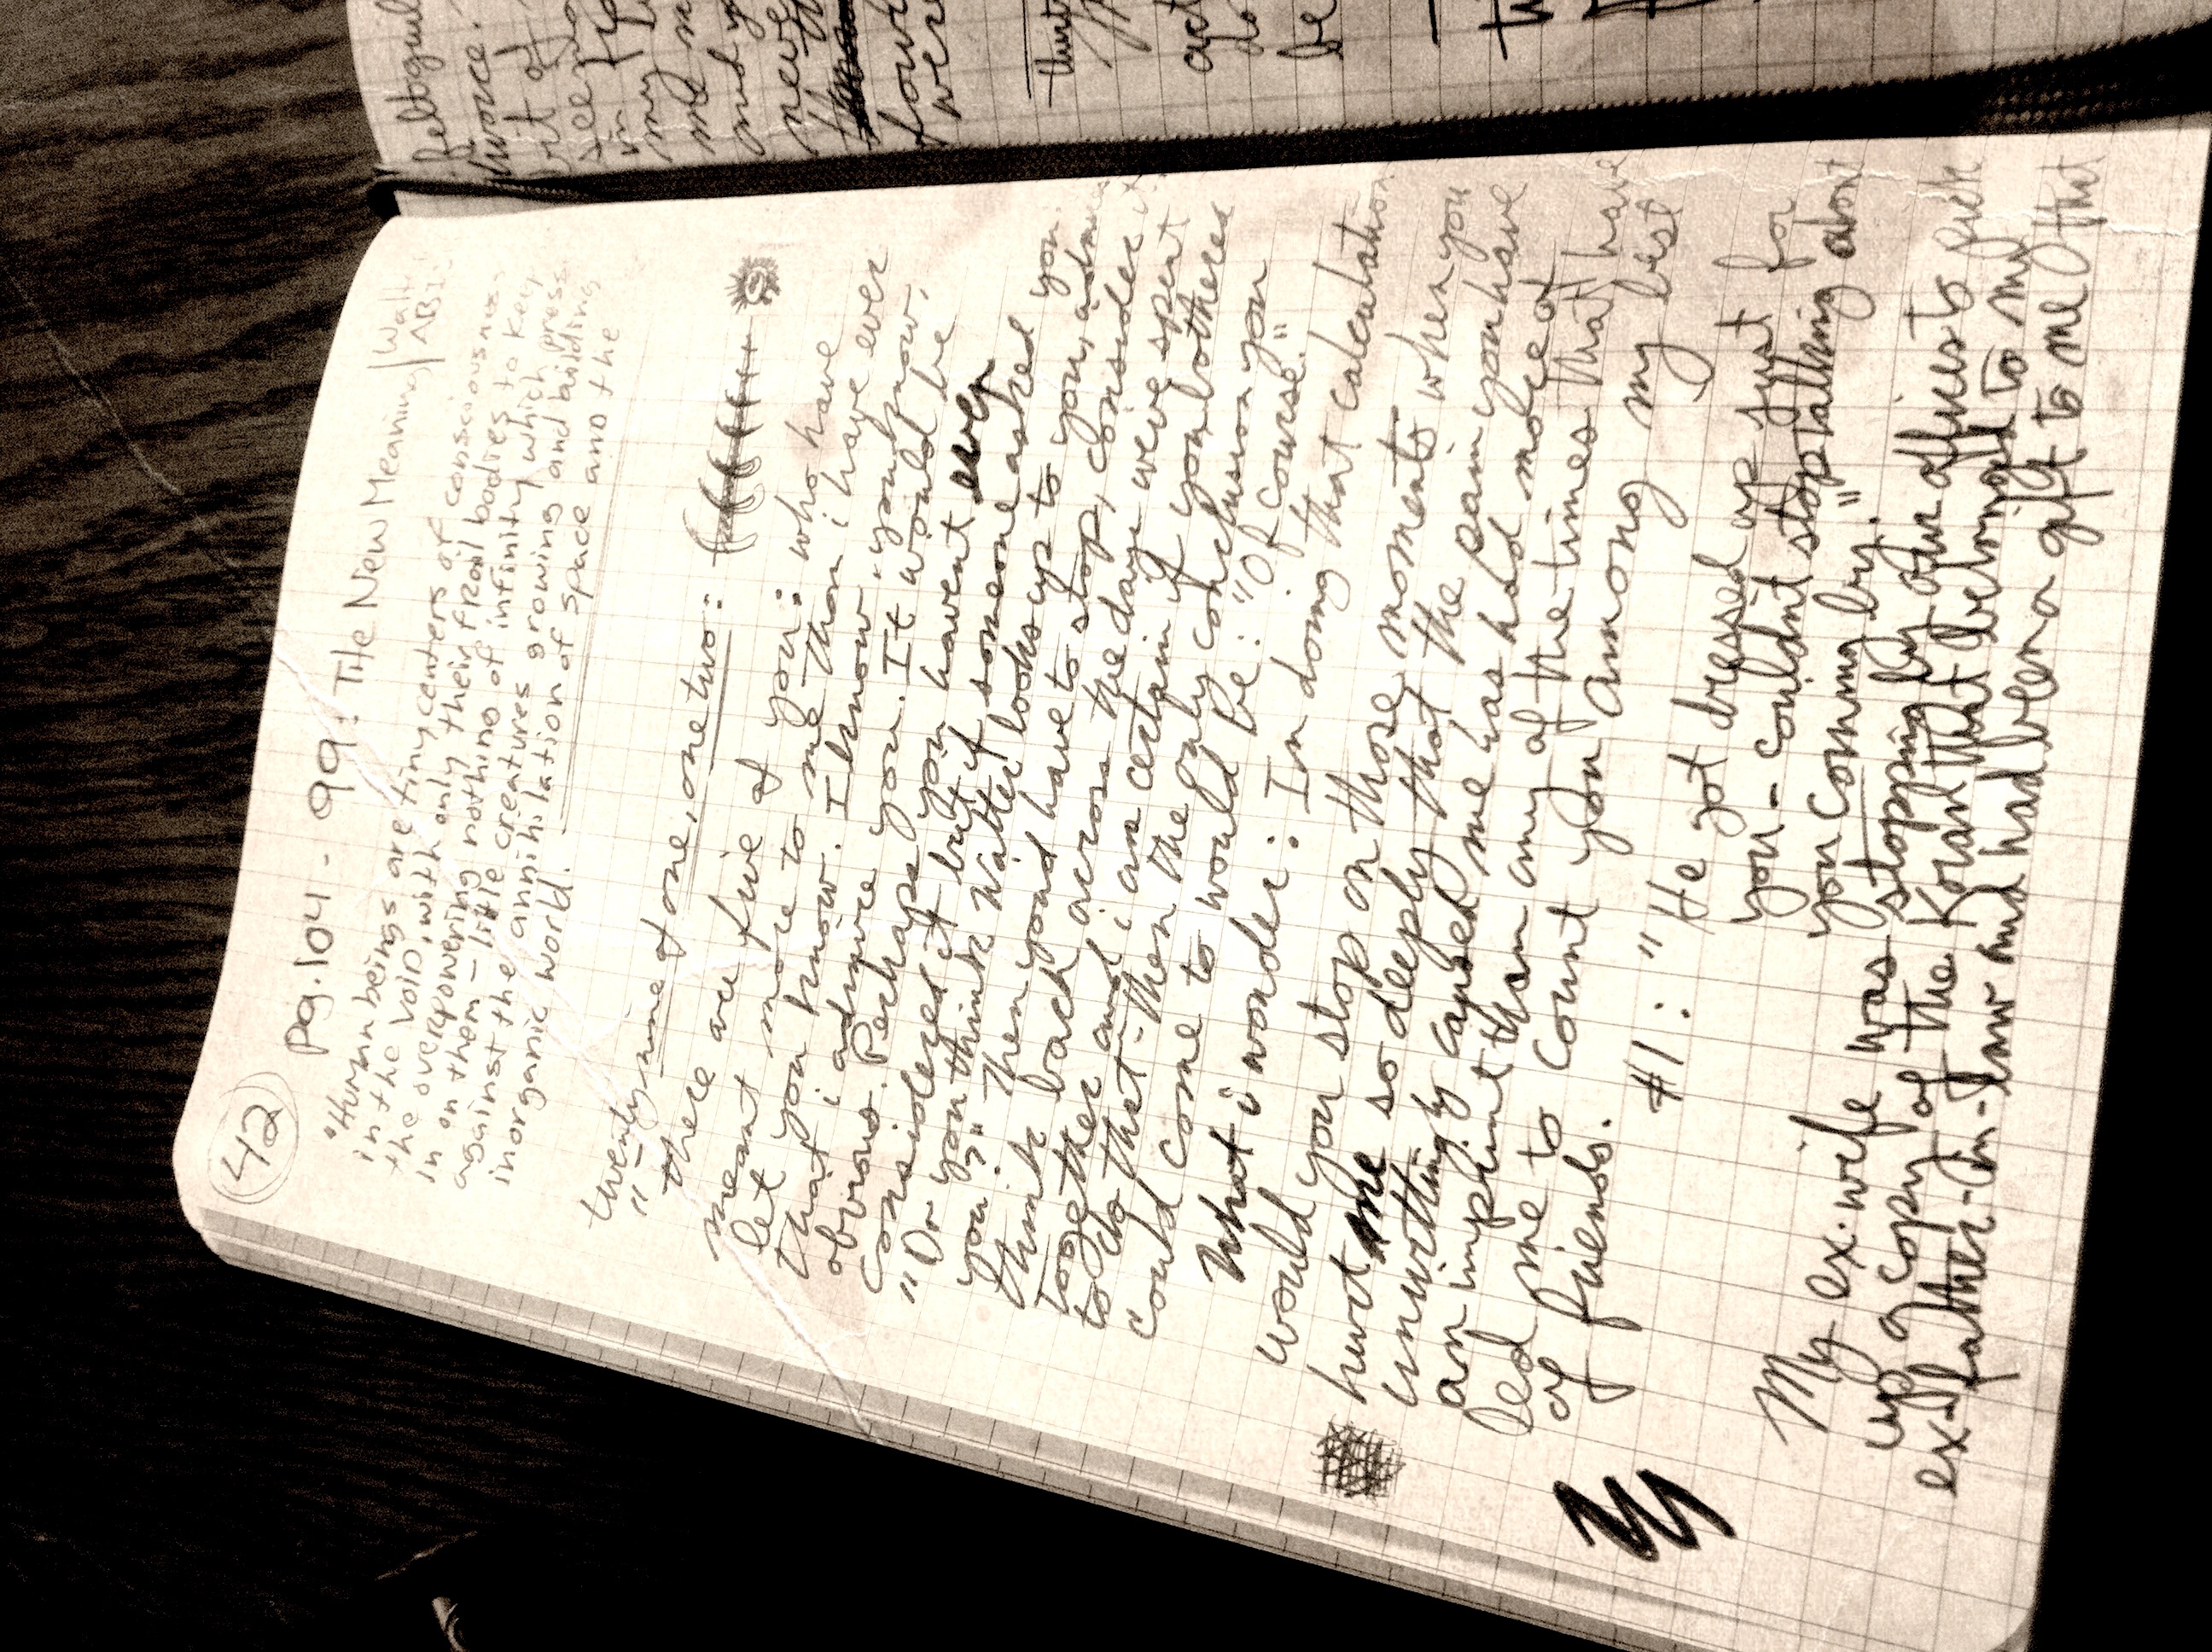 42
pg. 104 - 99: The New Meaning | Walt
ABI
"Human beings are tiny centers of consciousness
in the void, with only their frail bodies to keep
the overpowering nothing of infinity which press
in on them - little creatures growing and building
against the annihilation of space and the
inorganic world.
twenty nine of one, one two:
"there are five of you: who have
meant more to me than i have ever
let you know. I know "you know,
that i admire you. It would be
obvious. Perhaps you havent even
considered it but if someone asked you:
"Do you think Walter looks up to you, admires
you?" Then you'd have to stop, consider it,
think back across the days we've spent
together and i am certain if you bothered
to do that - then the only conclusion you
could come to would be: "Of course."
What i wonder: In doing that calculation
would you stop on those moments when you
hurt me so deeply that the pain you have
unwittingly caused me has had more of
an imprint than any of the times that have
led me to count you among my best
of friends.
#1: "He got dressed up just for
you - couldn't stop talking about
you coming by."
My ex-wife was stopping by our offices to pick
up a copy of the Koran that belonged to my
ex-father-in-law and had been a gift to me that
feltguil
divorce.
bit of
my
me
and
new
found
were
act
do
be